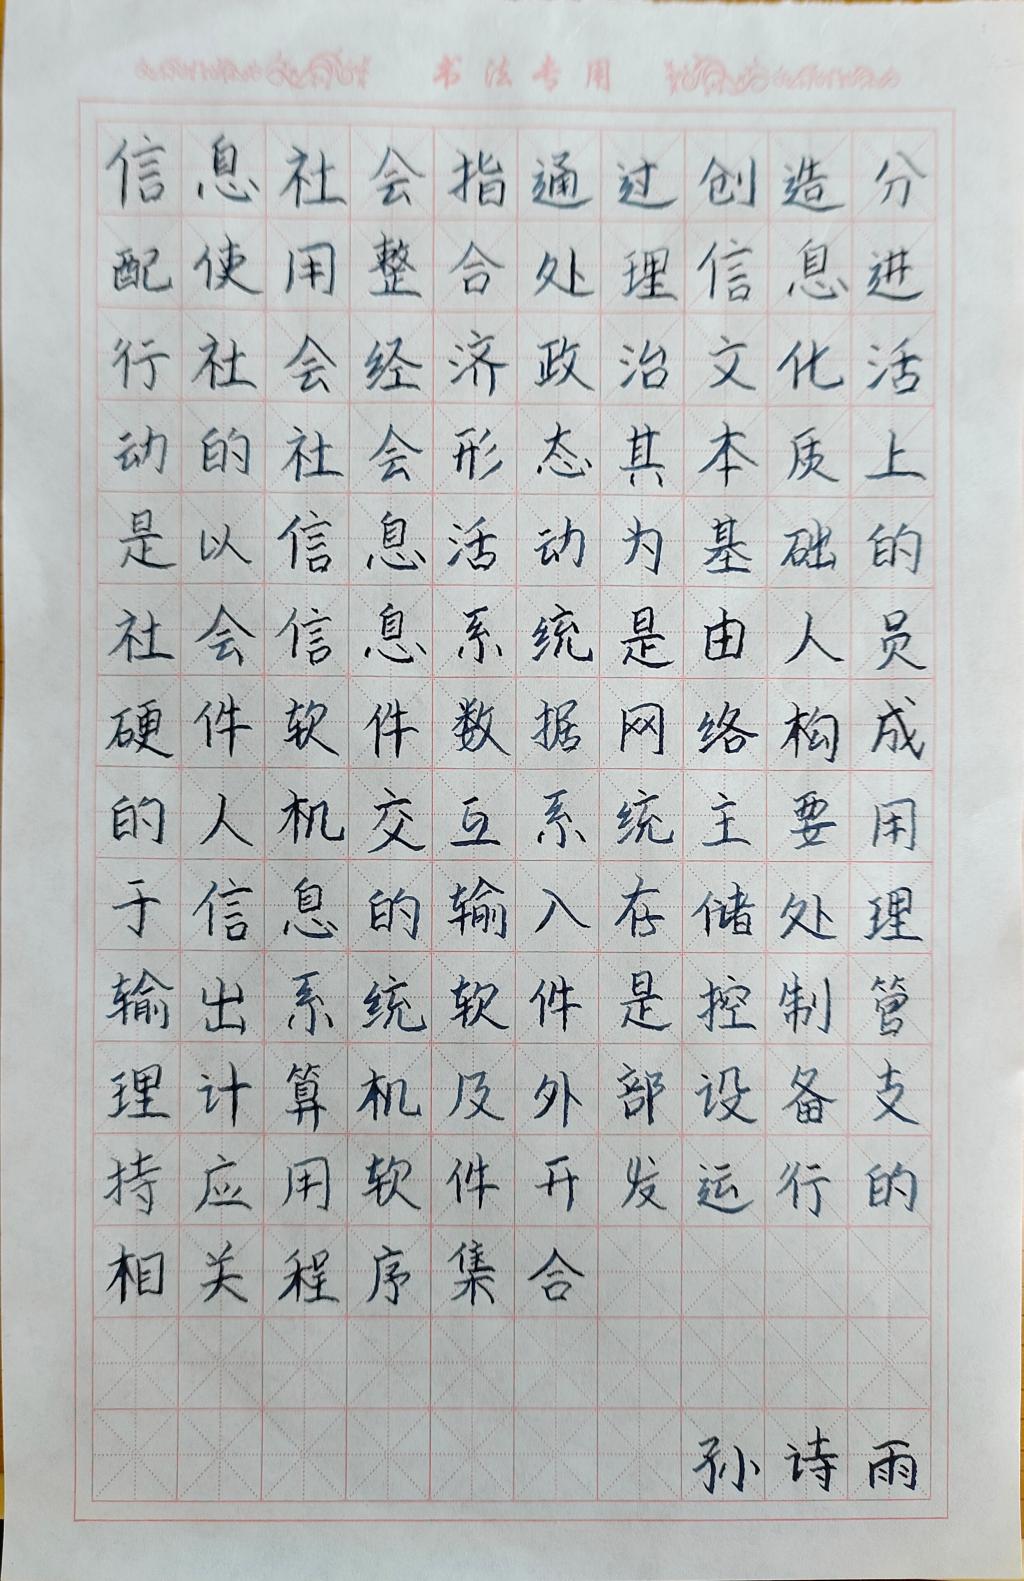 书法专用
信息社会指通过创造分
配使用整合处理信息进
行社会经济政治文化活
动的社会形态其本质上
是以信息活动为基础的
社会信息系统是由人员
硬件软件数据网络构成
的人机交互系统主要用
于信息的输入存储处理
输出系统软件是控制管
理计算机及外部设备支
持应用软件开发运行的
相关程序集合
孙诗雨